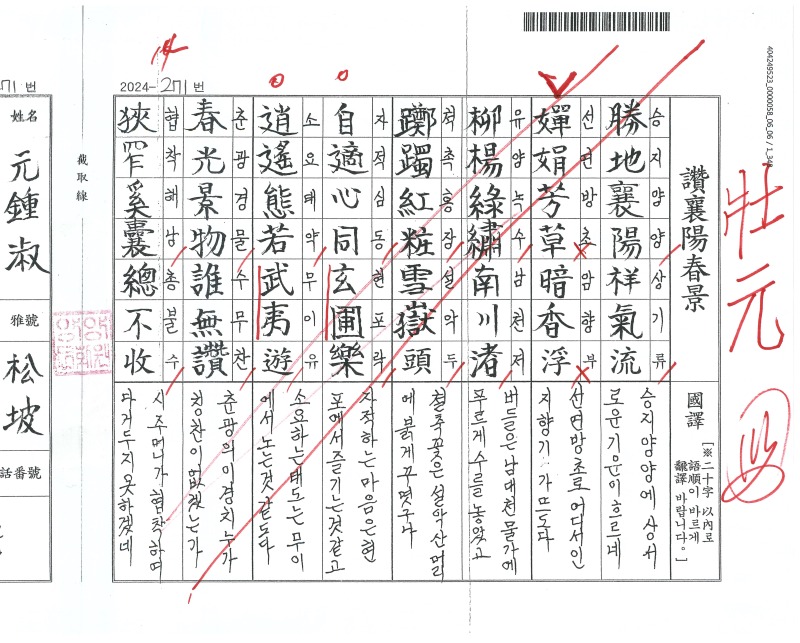 404249523_0000058_06_06
壯元
2024-271 번
讚襄陽春景
勝地襄陽祥氣流
승지양양상기류
嬋娟芳草暗香浮
선연방초암향부
柳楊綠繡南川渚
유양녹수남천저
躑躅紅粧雪嶽頭
척촉홍장설악두
自適心同玄圃樂
자적심동현포락
逍遙態若武夷遊
소요태약무이유
春光景物誰無讚
춘광경물수무찬
狹窄奚囊總不收
협착해낭총불수
國譯
[※二十字 以內로
語順이 바르게
飜譯 바랍니다。]
승지양양에 상서
로운 기운이 흐르네
선연방초로 어디서인
지 향기가 뜨도다
버들은 남대천 물가에
푸르게 수를 놓았고
철쭉꽃은 설악산 머리
에 붉게 꾸몃구나
자적하는 마음은 현
포에서 즐기는것 같고
소요하는 태도는 무이
에서 노는것 같도다
춘광의 이 경치 누가
칭찬이 없겠는가
시주머니가 협착하여
다 거두지 못하겠네
截取線
71 번
姓名
元鍾淑
雅號
松坡
話番號